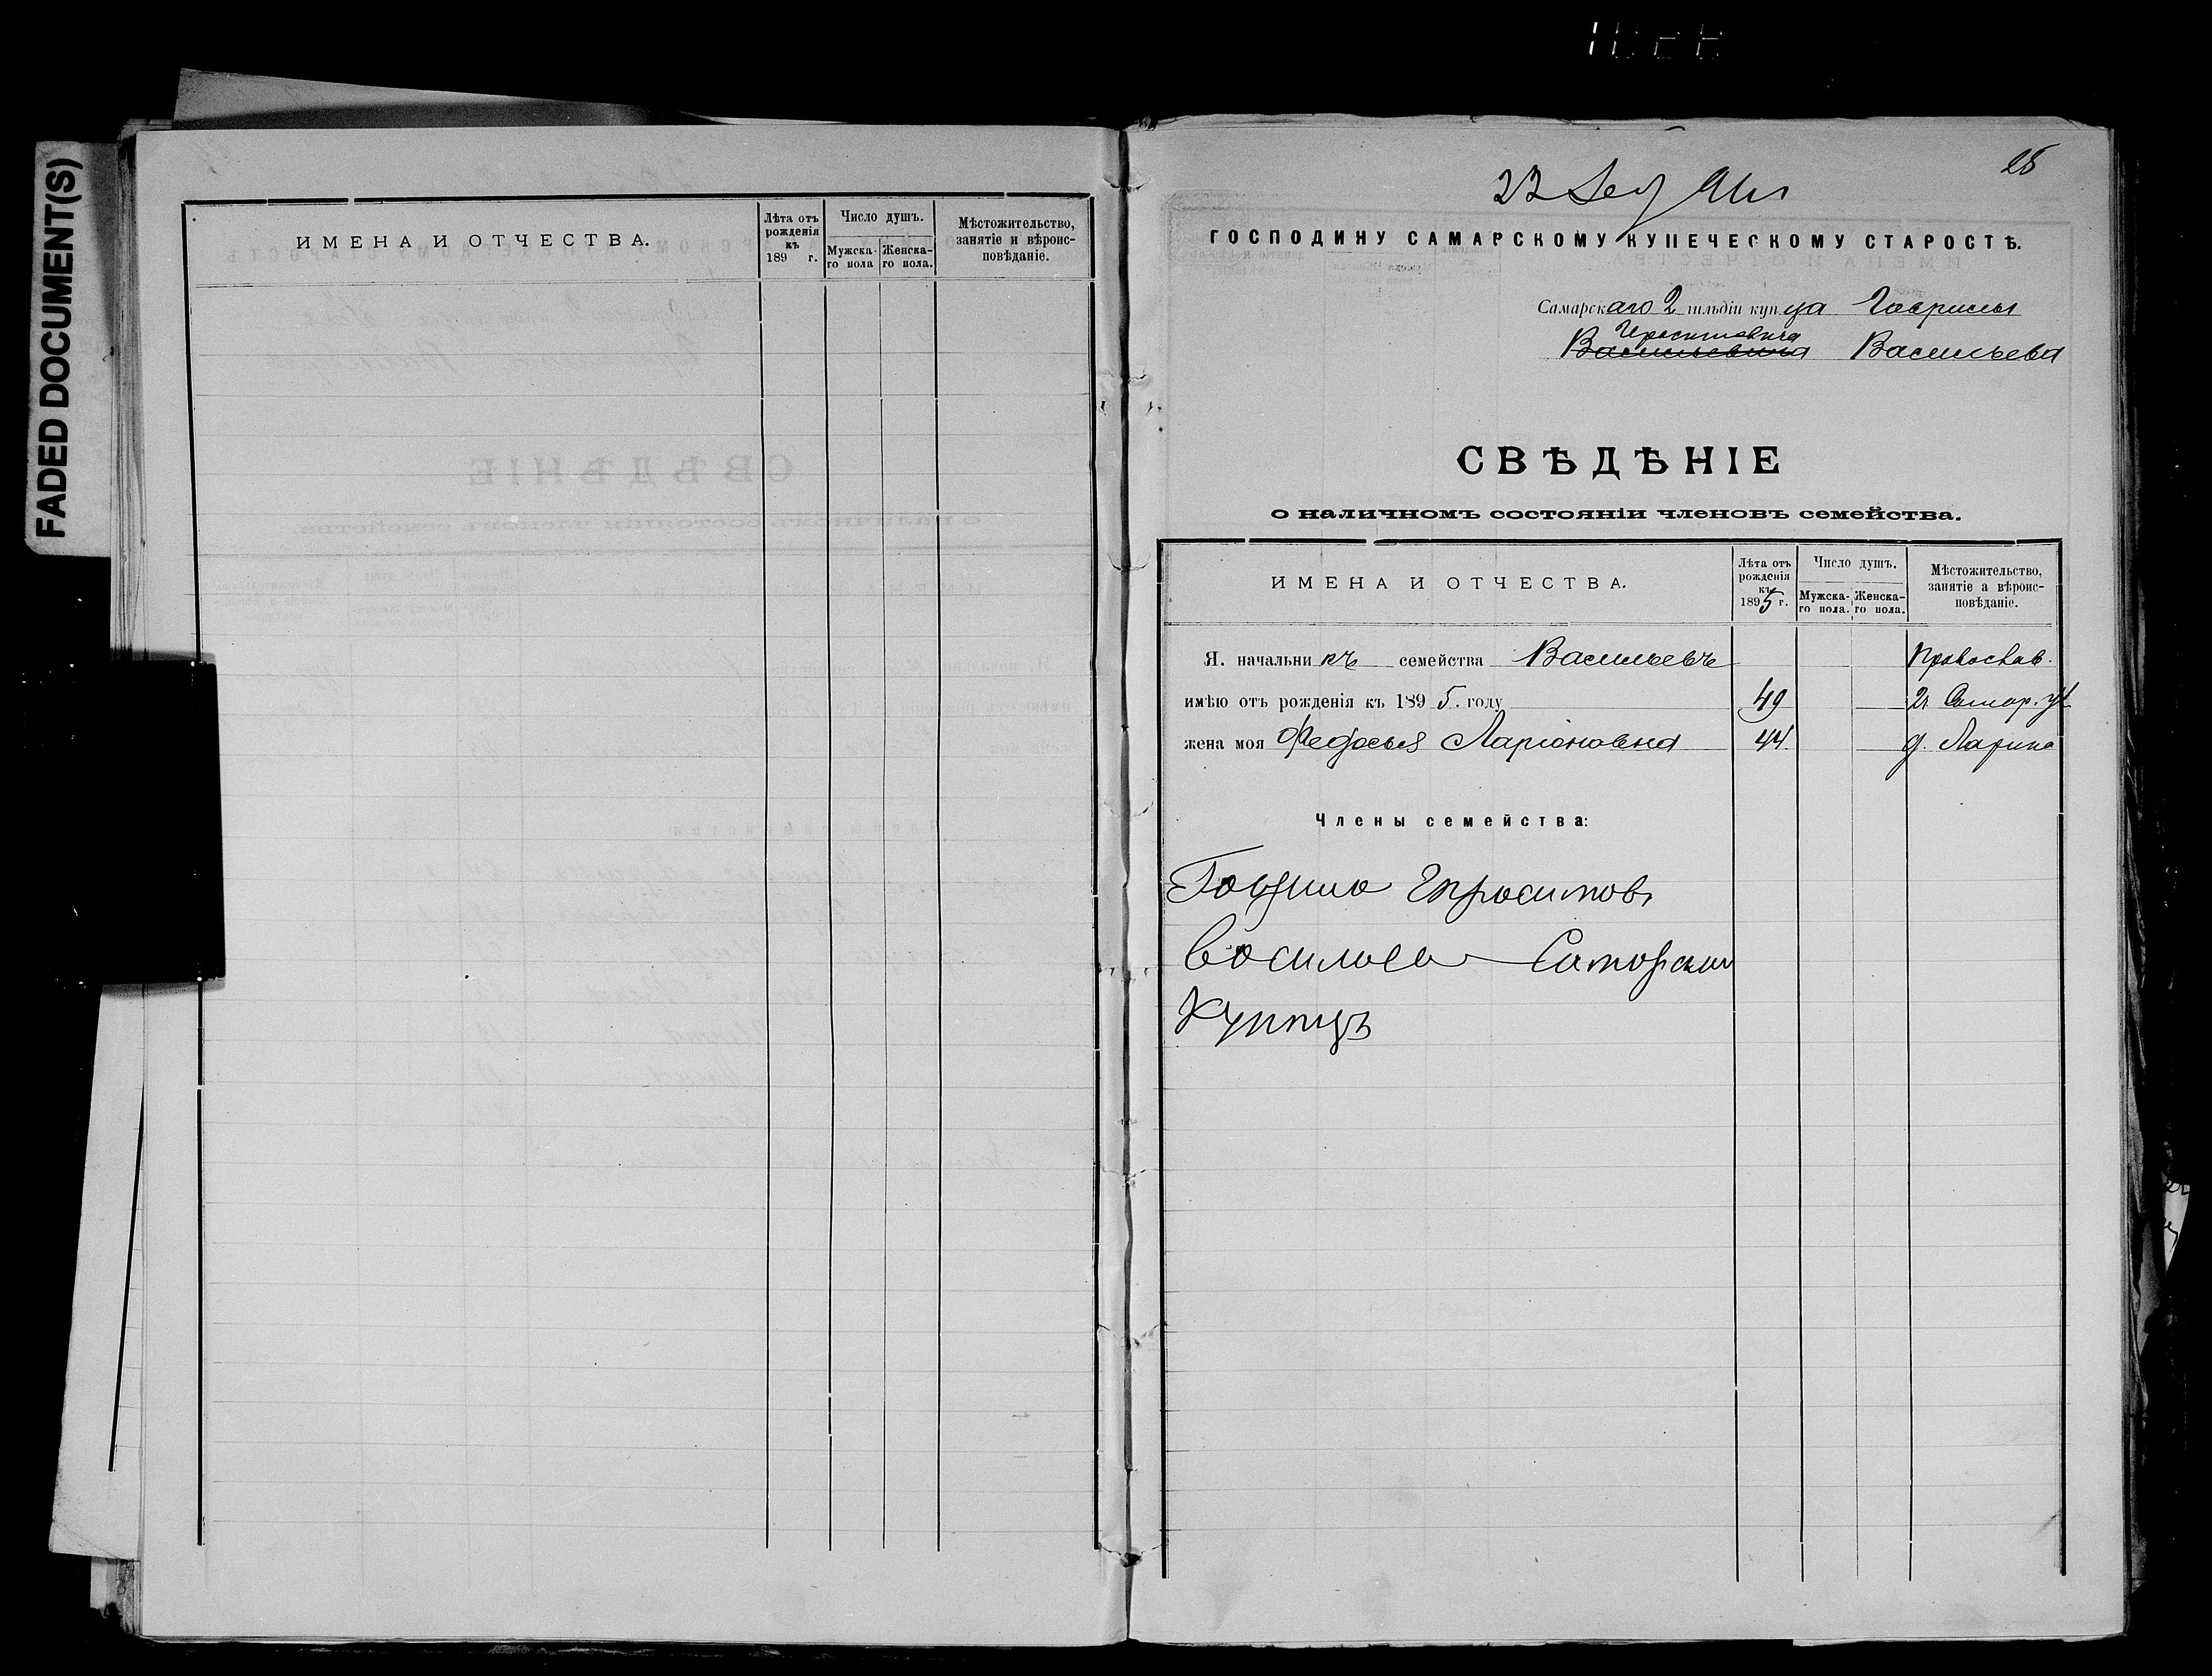 FADED DOCUMENT(S)
ИМЕНА И ОТЧЕСТВА.
Лѣта отъ рожденія къ 189 г.
Число душъ.
Мужска-го пола
Женска-го пола.
Мѣстожительство, занятіе и вѣроис-повѣданіе.
22
ГОСПОДИНУ САМАРСКОМУ КУПЕЧЕСКОМУ СТАРОСТѢ.
Самарскаго 2 гильдіи купца Гаврилы
Васильевича Васильева
СВѢДѢНІЕ
о наличномъ состояніи членовъ семейства.
ИМЕНА И ОТЧЕСТВА.
Лѣта отъ рожденія къ 1895 г.
Число душъ.
Мужска-го пола.
Женска-го пола.
Мѣстожительство, занятіе а вѣроис-повѣданіе.
Я. начальникъ семейства Васильевъ Православ.
имѣю отъ рожденія къ 1895. году 49
жена моя Федосья Ларіоновна 44
Члены семейства:
Гаврила
Васильев Самарскии
Купецъ